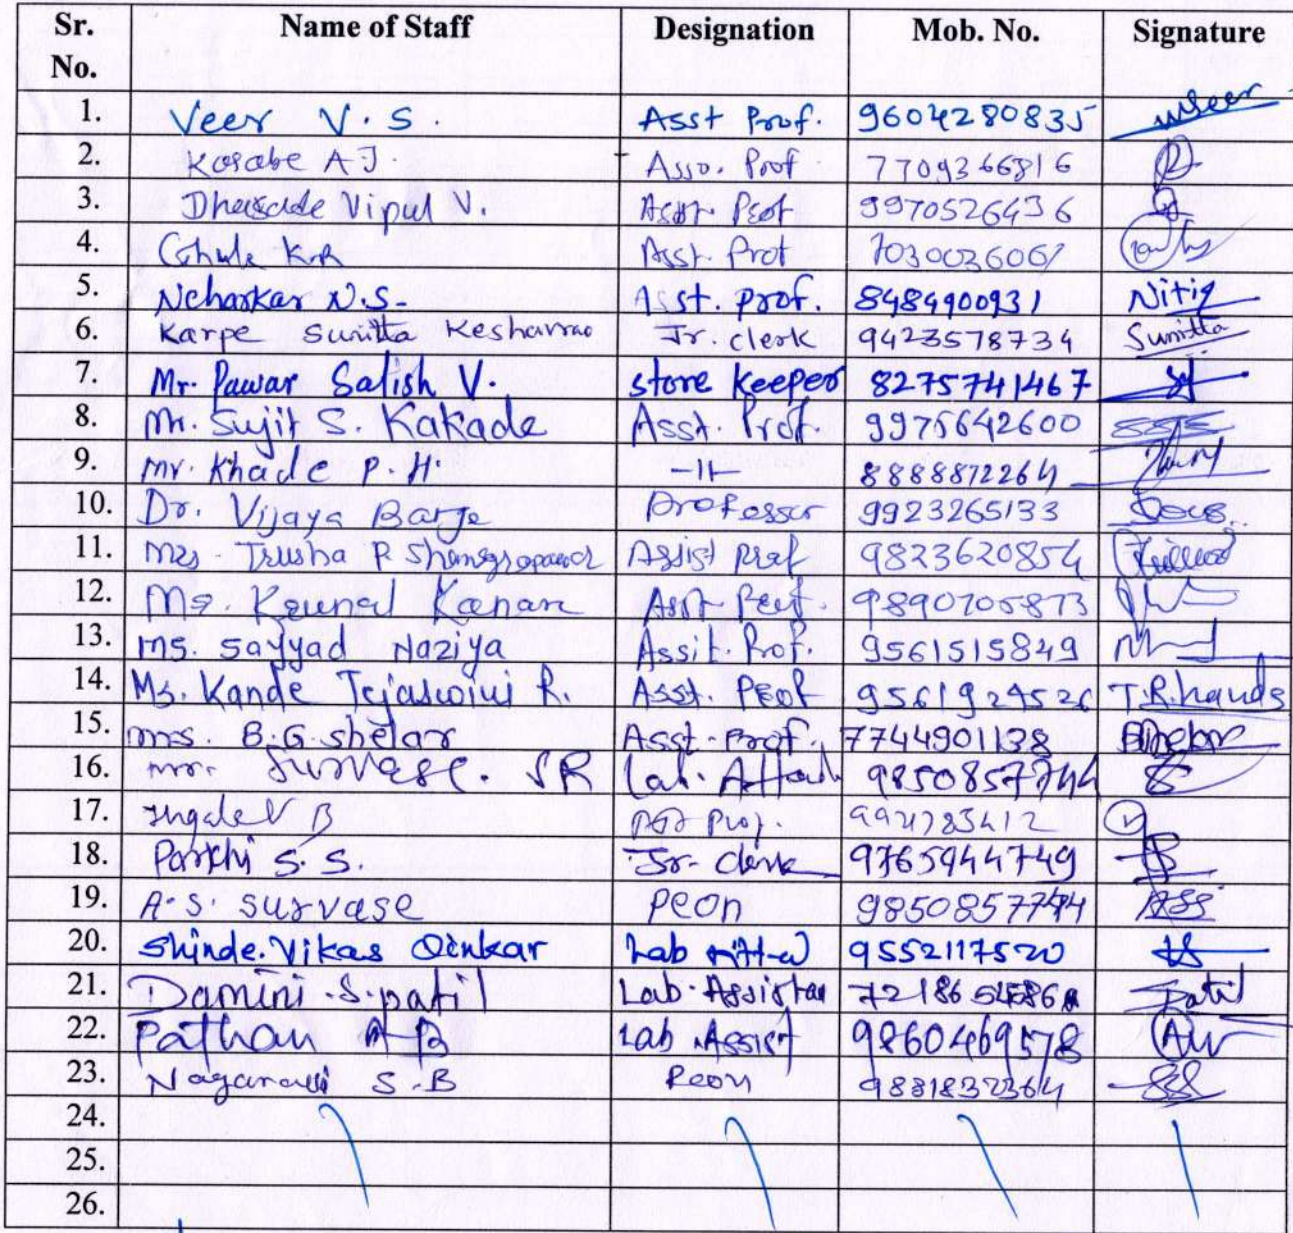 Sr. No. Name of Staff Designation Mob. No. Signature
1. Veer V. S. Asst Prof. 9604280835 
2. Kasabe A J. Asso. Prof 7709366816
3. Dhasade Vipul V. Asst. Prof 9970526436
4. Ghule K.R Asst. Prof 7030036061
5. Neharkar N.S. Asst. prof. 8484900931 Nitin
6. Karpe Sunitta Keshavrao Jr. clerk 9423578734 Sunitta
7. Mr. Pawar Satish V. store keeper 8275741467
8. Mr. Sujit S. Kakade Asst. Prof. 9975642600
9. Mr. Khade P. H. -11- 8888872264
10. Dr. Vijaya Barge Professor 9923265133
11. Mrs. Trusha P. Assist Prof 9823620854
12. Kunal Asst. Prof. 9890705873
13. Ms. Sayyad Naziya Assit. Prof. 9561515849
14. Ms. Kande Tejaswini R. Asst. Prof 9561924526 T.R.kande
15. ms. B.G. shelar Asst. Prof. 7744901138
16. mr. Survase. SR Lab. Attend 9850857744
17. Ingale V B
18. Parkhi S. S. Jr. clerk 9765944749
19. A. S. survase peon 9850857744 ASS
20. Shinde. Vikas Dinkar Lab 9552117520
21. Damini. S. patil Lab. Assistan Patil
22. Pathan A B Lab Assist 9860469578
23. S. B Peon 9881832364
24.
25.
26.